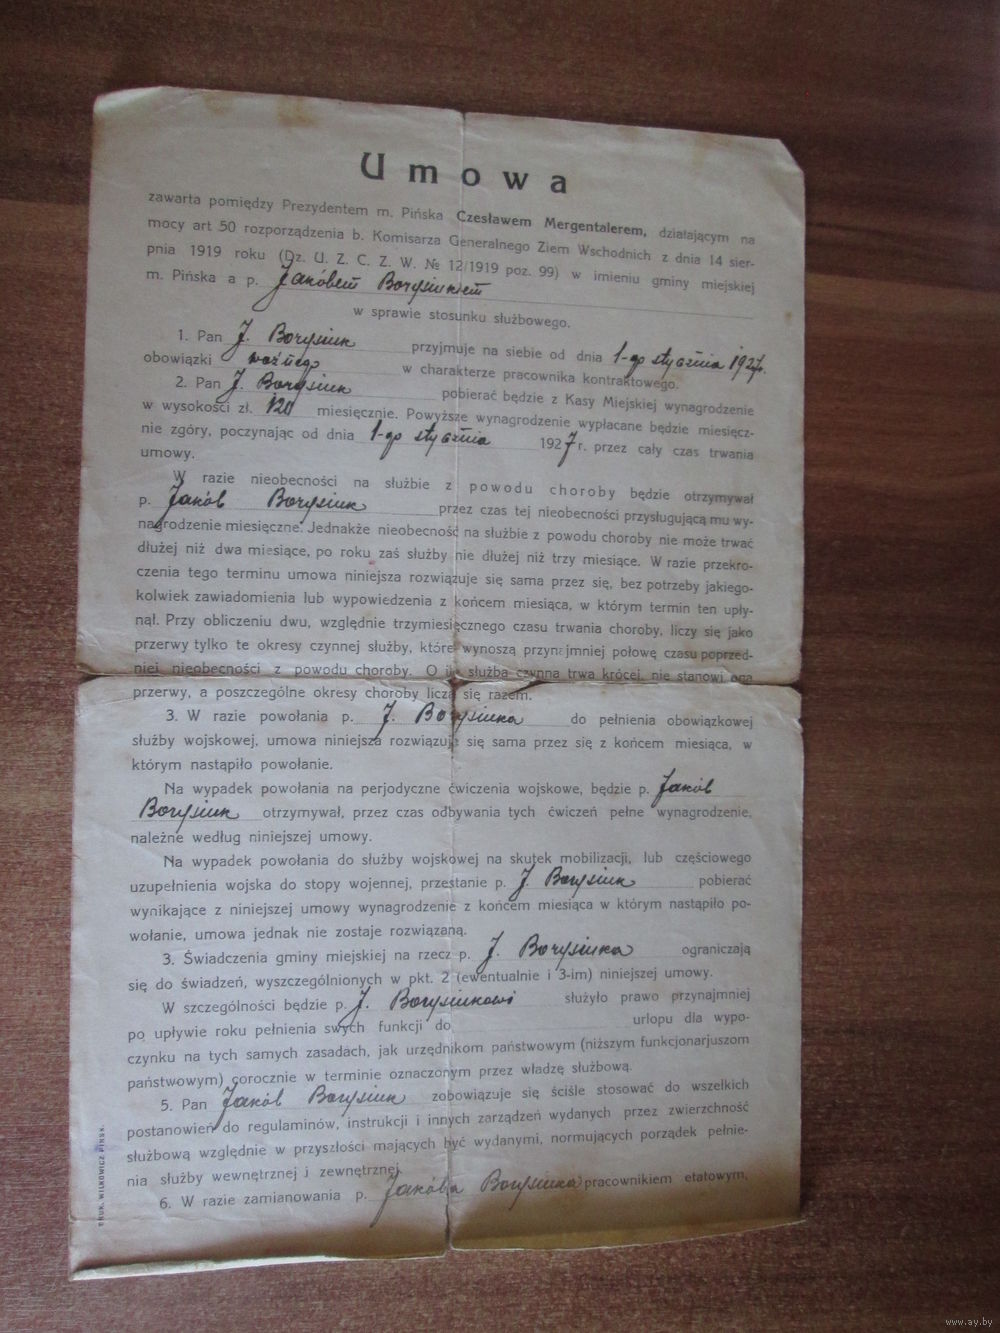 Umowa
zawarta pomiędzy Prezydentem m. Pińska Czesławem Mergentalerem, działającym na
mocy art 50 rozporządzenia b. Komisarza Generalnego Ziem Wschodnich z dnia 14 sier-
pnia 1919 roku (Dz. U. Z. C. Z. W. № 12/1919 poz. 99) w imieniu gminy miejskiej
m. Pińska a p. Jakóbem Borysiukiem
w sprawie stosunku służbowego.
1. Pan J. Borysiuk przyjmuje na siebie od dnia 1-go stycznia 1927r.
obowiązki woźnego w charakterze pracownika kontraktowego.
2. Pan J. Borysiuk pobierać będzie z Kasy Miejskiej wynagrodzenie
w wysokości zł. 120 miesięcznie. Powyższe wynagrodzenie wypłacane będzie miesięcz-
nie zgóry, poczynając od dnia 1-go stycznia 1927 r. przez cały czas trwania
umowy.
W razie nieobecności na służbie z powodu choroby będzie otrzymywał
p. Jakób Borysiuk przez czas tej nieobecności przysługującą mu wy-
nagrodzenie miesięczne. Jednakże nieobecność na służbie z powodu choroby nie może trwać
dłużej niż dwa miesiące, po roku zaś służby nie dłużej niż trzy miesiące. W razie przekro-
czenia tego terminu umowa niniejsza rozwiązuje się sama przez się, bez potrzeby jakiego-
kolwiek zawiadomienia lub wypowiedzenia z końcem miesiąca, w którym termin ten upły-
nął. Przy obliczeniu dwu, względnie trzymiesięcznego czasu trwania choroby, liczy się jako
przerwy tylko te okresy czynnej służby, które wynoszą przynajmniej połowę czasu poprzed-
niej nieobecności z powodu choroby. O ile służba czynna trwa krócej, nie stanowi ona
przerwy, a poszczególne okresy choroby liczą się razem.
3. W razie powołania p. J. Borysiuka do pełnienia obowiązkowej
służby wojskowej, umowa niniejsza rozwiązuje się sama przez się z końcem miesiąca, w
którym nastąpiło powołanie.
Na wypadek powołania na perjodyczne ćwiczenia wojskowe, będzie p. Jakób
Borysiuk otrzymywał, przez czas odbywania tych ćwiczeń pełne wynagrodzenie,
należne według niniejszej umowy.
Na wypadek powołania do służby wojskowej na skutek mobilizacji, lub częściowego
uzupełnienia wojska do stopy wojennej, przestanie p. J. Borysiuk pobierać
wynikające z niniejszej umowy wynagrodzenie z końcem miesiąca w którym nastąpiło po-
wołanie, umowa jednak nie zostaje rozwiązaną.
3. Świadczenia gminy miejskiej na rzecz p. J. Borysiuka ograniczają
się do świadzeń, wyszczególnionych w pkt. 2 (ewentualnie i 3-im) niniejszej umowy.
W szczególności będzie p. J. Borysiukowi służyło prawo przynajmniej
po upływie roku pełnienia swych funkcji do urlopu dla wypo-
czynku na tych samych zasadach, jak urzędnikom państwowym (niższym funkcjonarjuszom
państwowym) corocznie w terminie oznaczonym przez władzę służbową.
5. Pan Jakób Borysiuk zobowiązuje się ściśle stosować do wszelkich
postanowień do regulaminów, instrukcji i innych zarządzeń wydanych przez zwierzchność
służbową względnie w przyszłości mających być wydanymi, normujących porządek pełnie-
nia służby wewnętrznej i zewnętrznej.
6. W razie zamianowania p. Jakóba Borysiuka pracownikiem etatowym,
DRUK. WILKOWICZ PIŃSK.
www.ay.by